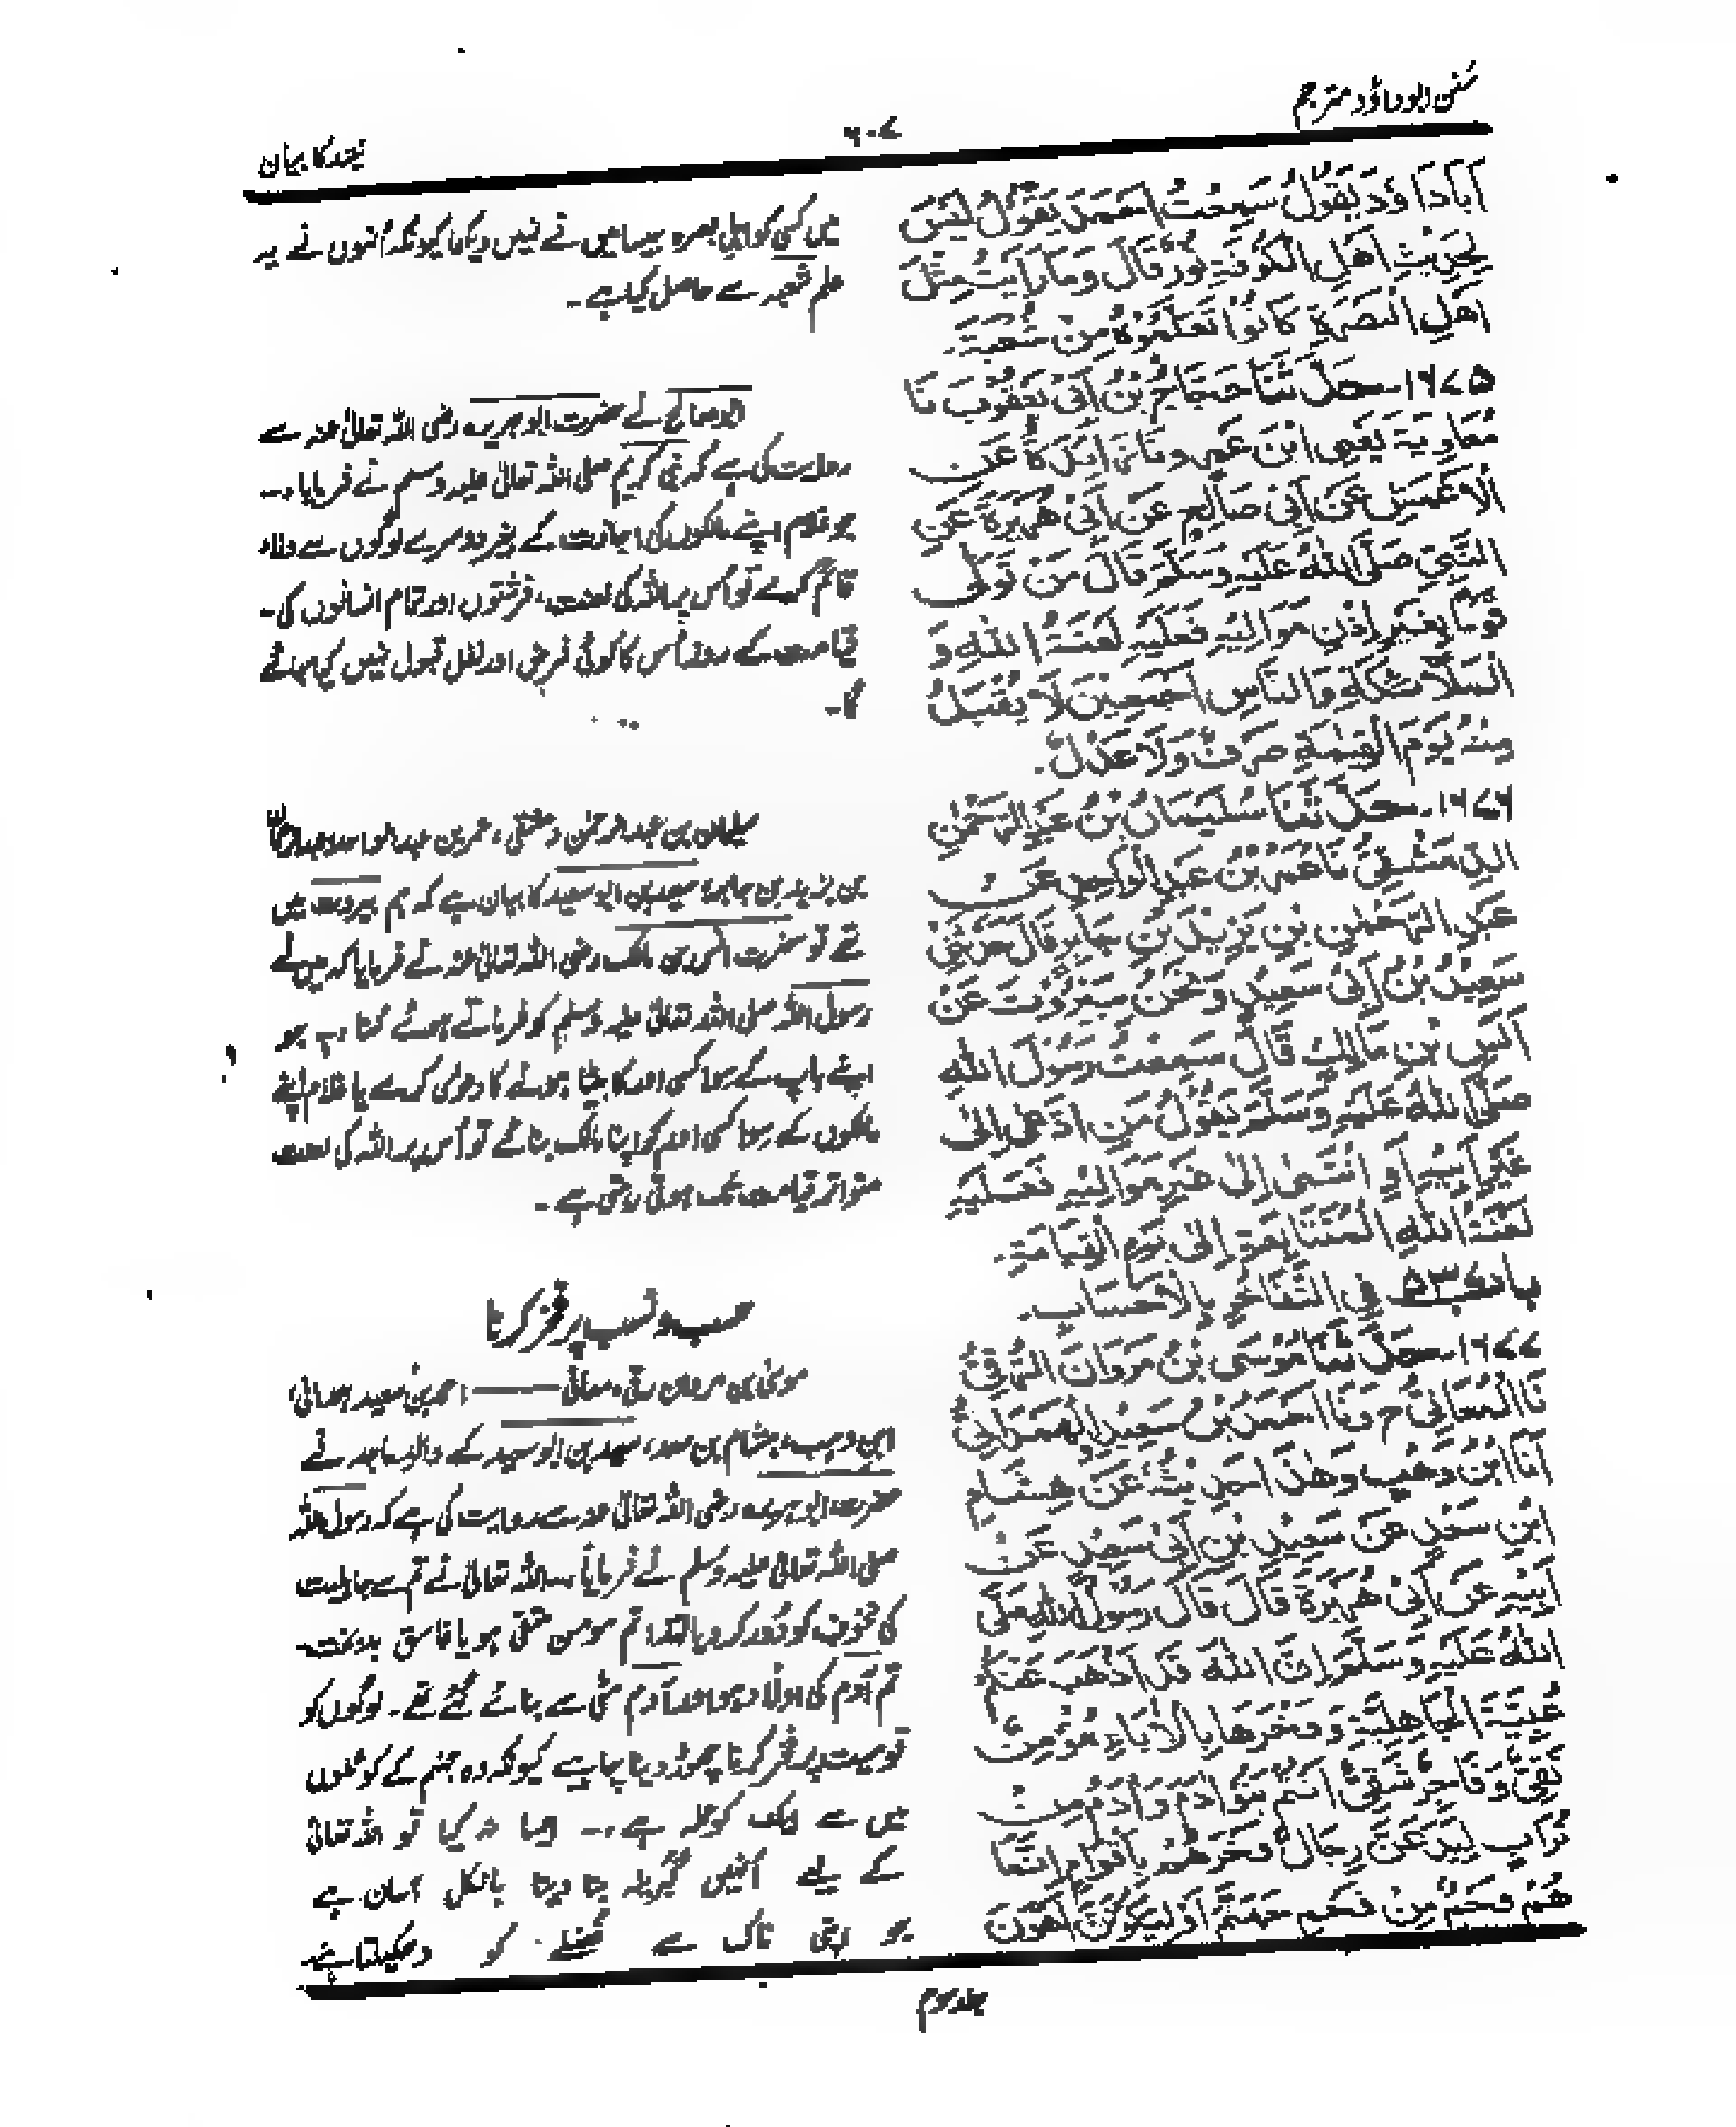 سنن ابو داؤد مترجم
۶۰۷
نیند کا بیان
اَبَادَاؤدَ يَقُولُ سَمِعْتُ اَحْمَدَ يَقُولُ لَيْسَ
لِحَدِيْثِ اَهْلِ الْكُوْفَةِ نُوْرٌ قَالَ وَمَا رَاَيْتُ مِثْلَ
اَهْلِ الْبَصْرَةِ كَانُوْا تَعَلَّمُوْهُ مِنْ شُعْبَةَ۔
۱۶۷۵۔ حَدَّثَنَا حَجَّاجُ بْنُ اَبِيْ يَعْقُوْبَ نَا
مُعَاوِيَةُ يَعْنِي ابْنَ عَمْرٍو نَا زَائِدَةُ عَنِ
الْاَعْمَشِ عَنْ اَبِيْ صَالِحٍ عَنْ اَبِيْ هُرَيْرَةَ عَنِ
النَّبِيِّ صَلَّى اللّٰهُ عَلَيْهِ وَسَلَّمَ قَالَ مَنْ تَوَلّٰى
قَوْمًا بِغَيْرِ اِذْنِ مَوَالِيْهِ فَعَلَيْهِ لَعْنَةُ اللّٰهِ وَ
الْمَلَائِكَةِ وَالنَّاسِ اَجْمَعِيْنَ لَا يُقْبَلُ
مِنْهُ يَوْمَ الْقِيٰمَةِ صَرْفٌ وَلَا عَدْلٌ۔
۱۶۷۶۔ حَدَّثَنَا سُلَيْمَانُ بْنُ عَبْدِ الرَّحْمٰنِ
الدِّمَشْقِيُّ نَا عُمَرُ بْنُ عَبْدِ الْوَاحِدِ عَنْ
عَبْدِ الرَّحْمٰنِ بْنِ يَزِيْدَ بْنِ جَابِرٍ قَالَ حَدَّثَنِيْ
سَعِيْدُ بْنُ اَبِيْ سَعِيْدٍ وَنَحْنُ بِبَيْرُوْتَ عَنْ
اَنَسِ بْنِ مَالِكٍ قَالَ سَمِعْتُ رَسُوْلَ اللّٰهِ
صَلَّى اللّٰهُ عَلَيْهِ وَسَلَّمَ يَقُوْلُ مَنِ ادَّعٰى اِلٰى
غَيْرِ اَبِيْهِ اَوِ انْتَمٰى اِلٰى غَيْرِ مَوَالِيْهِ فَعَلَيْهِ
لَعْنَةُ اللّٰهِ الْمُتَتَابِعَةُ اِلٰى يَوْمِ الْقِيَامَةِ۔
باب ۵۳۷ فِي التَّفَاخُرِ بِالْاَحْسَابِ۔
۱۶۷۷۔ حَدَّثَنَا مُوْسَى بْنُ مَرْوَانَ الرَّقِّيُّ
نَا الْمُعَافٰى ح وَنَا اَحْمَدُ بْنُ سَعِيْدِ الْهَمْدَانِيُّ
اَنَا ابْنُ وَهْبٍ وَهٰذَا حَدِيْثُهُ عَنْ هِشَامِ
ابْنِ سَعْدٍ عَنْ سَعِيْدِ بْنِ اَبِيْ سَعِيْدٍ عَنْ
اَبِيْهِ عَنْ اَبِيْ هُرَيْرَةَ قَالَ قَالَ رَسُوْلُ اللّٰهِ صَلَّى
اللّٰهُ عَلَيْهِ وَسَلَّمَ اِنَّ اللّٰهَ قَدْ اَذْهَبَ عَنْكُمْ
عُبِّيَّةَ الْجَاهِلِيَّةِ وَفَخْرَهَا بِالْاٰبَاءِ مُؤْمِنٌ
تَقِيٌّ وَفَاجِرٌ شَقِيٌّ اَنْتُمْ بَنُوْ اٰدَمَ وَاٰدَمُ مِنْ
تُرَابٍ لَيَدَعَنَّ رِجَالٌ فَخْرَهُمْ بِاَقْوَامٍ اِنَّمَا
هُمْ فَحْمٌ مِنْ فَحْمِ جَهَنَّمَ اَوْ لَيَكُوْنُنَّ اَهْوَنَ
میں کسی کو اہلِ بصرہ جیسا میں نے نہیں دیکھا کیونکہ اُنہوں نے یہ
علم شعبہ سے حاصل کیا ہے۔
ابو صالح نے حضرت ابو ہریرہ رضی اللہ تعالیٰ عنہ سے
روایت کی ہے کہ نبی کریم صلی اللہ تعالیٰ علیہ وسلم نے فرمایا:۔
جو غلام اپنے مالکوں کی اجازت کے بغیر دوسرے لوگوں سے ولاء
قائم کرے تو اُس پر اللہ کی لعنت، فرشتوں اور تمام انسانوں کی۔
قیامت کے روز اُس کا کوئی فرض اور نفل قبول نہیں کیا جائے
گا۔
سلیمان بن عبدالرحمٰن دمشقی، عمر بن عبدالواحد، عبدالرحمٰن
بن یزید بن جابر، سعید بن ابو سعید کا بیان ہے کہ ہم بیروت میں
تھے تو حضرت انس بن مالک رضی اللہ تعالیٰ عنہ نے فرمایا کہ میں نے
رسول اللہ صلی اللہ تعالیٰ علیہ وسلم کو فرماتے ہوئے سُنا:۔ جو
اپنے باپ کے سوا کسی اور کا بیٹا ہونے کا دعویٰ کرے یا غلام اپنے
مالکوں کے سوا کسی اور کو اپنا مالک بنائے تو اُس پر اللہ کی لعنت
متواتر قیامت تک ہوتی رہتی ہے۔
حسب و نسب پر فخر کرنا
موسیٰ بن مروان رقی، معافی ——— احمد بن سعید ہمدانی،
ابن وہب، ہشام بن سعد، سعید بن ابو سعید کے والد ماجد نے
حضرت ابو ہریرہ رضی اللہ تعالیٰ عنہ سے روایت کی ہے کہ رسول اللہ
صلی اللہ تعالیٰ علیہ وسلم نے فرمایا:۔ اللہ تعالیٰ نے تم سے جاہلیت
کی نخوت کو دُور کر دیا لہٰذا تم مومن متقی ہو یا فاسق بدبخت۔
تم آدم کی اولاد ہو اور آدم مٹی سے بنائے گئے تھے۔ لوگوں کو
قومیت پر فخر کرنا چھوڑ دینا چاہیے کیونکہ وہ جہنم کے کوئلوں
میں سے ایک کوئلہ ہے۔۔ ایسا نہ کیا تو اللہ تعالیٰ
کے لیے اُنہیں گبریلہ بنا دینا بالکل آسان ہے
جو اپنی ناک سے فضلے کو دھکیلتا ہے۔
جلد سوم